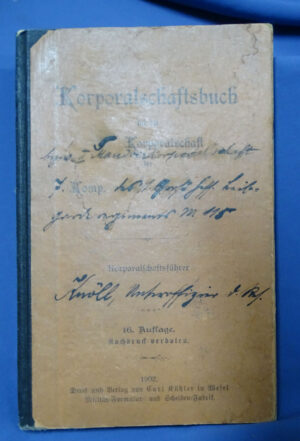 Korporalschaftsbuch
der
Korporalschaft
7. Komp. des 1. Großh. Hess. Leib-
garde regiments № 115
Korporalschaftsführer
Knöll, Unteroffizier d. Res.
16. Auflage.
Nachdruck verboten.
1902.
Druck und Verlag von Carl Kühler in Wesel
Militär-Formular- und Scheiben-Fabrik.